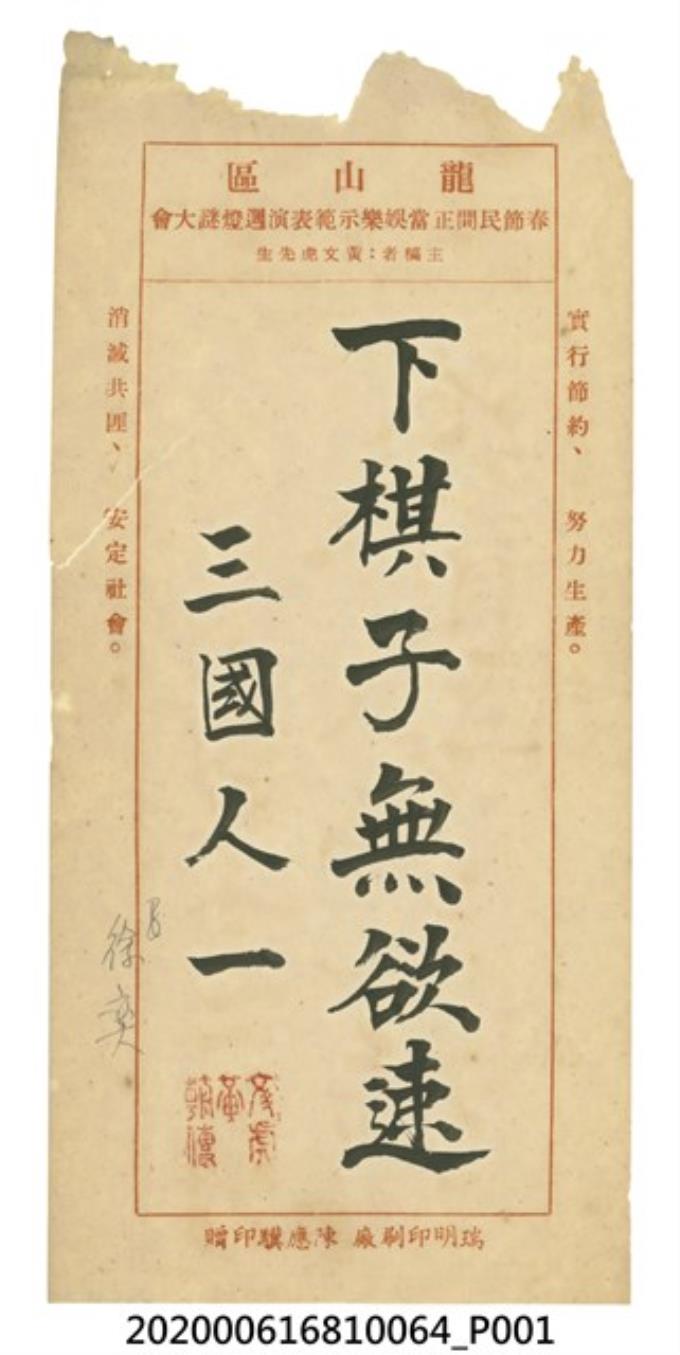 龍山區
春節民間正當娛樂示範表演週燈謎大會
主稿者：黃文虎先生
實行節約、努力生產。
下棋子無欲速
三國人一
消滅共匪、安定社會。
徐奕
瑞明印刷廠 陳應驥印贈
202000616810064_P001